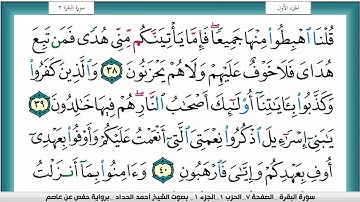 الجزء الأول
سورة البقرة ٢
قُلْنَا ٱهْبِطُوا۟ مِنْهَا جَمِيعًۭا ۖ فَإِمَّا يَأْتِيَنَّكُم مِّنِّى هُدًۭى فَمَن تَبِعَ
هُدَاىَ فَلَا خَوْفٌ عَلَيْهِمْ وَلَا هُمْ يَحْزَنُونَ ٣٨ وَٱلَّذِينَ كَفَرُوا۟
وَكَذَّبُوا۟ بِـَٔايَـٰتِنَآ أُو۟لَـٰٓئِكَ أَصْحَـٰبُ ٱلنَّارِ ۖ هُمْ فِيهَا خَـٰلِدُونَ
٣٩ يَـٰبَنِىٓ إِسْرَٰٓءِيلَ ٱذْكُرُوا۟ نِعْمَتِىَ ٱلَّتِىٓ أَنْعَمْتُ عَلَيْكُمْ وَأَوْفُوا۟ بِعَهْدِىٓ
أُوفِ بِعَهْدِكُمْ وَإِيَّـٰىَ فَٱرْهَبُونِ ٤٠ وَءَامِنُوا۟ بِمَآ أَنزَلْتُ
سورة البقرة _ الصفحة ٧ _ الحزب ١ _ الجزء ١ _ بصوت الشيخ أحمد الحداد _ برواية حفص عن عاصم